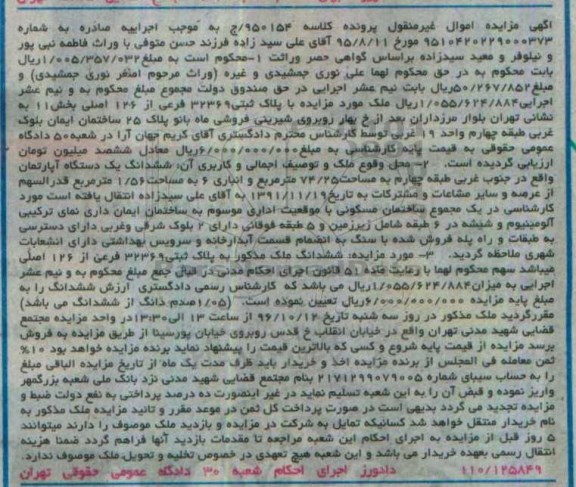 آگهی مزایده اموال غیرمنقول پرونده کلاسه ۹۵۰۱۵۴/ج به موجب اجراییه صادره به شماره
۹۵۱۰۴۲۰۲۲۹۰۰۰۳۷۳ مورخ ۹۵/۸/۱۱ آقای علی سید زاده فرزند حسن متوفی با وراث فاطمه نبی پور
و نیلوفر و معید سیدزاده براساس گواهی حصر وراثت ۱-محکوم است به مبلغ ۱/۰۰۵/۳۵۷/۰۳۲ریال
بابت محکوم به در حق محکوم لهما علی نوری جمشیدی و غیره (وراث مرحوم اصغر نوری جمشیدی) و
مبلغ۵۰/۲۶۷/۸۵۲ریال بابت نیم عشر اجرایی در حق صندوق دولت مجموع مبلغ محکوم به و نیم عشر
اجرایی۱/۰۵۵/۶۲۴/۸۸۴ریال ملک مورد مزایده با پلاک ثبتی۳۲۳۶۹ فرعی از ۱۲۶ اصلی بخش۱۱ به
نشانی تهران بلوار مرزداران بعد از خ بهار روبروی شیرینی فروشی ماه بانو پلاک ۲۵ ساختمان ایمان بلوک
غربی طبقه چهارم واحد ۱۹ غربی توسط کارشناس محترم دادگستری آقای کریم جهان آرا در شعبه۵۰ دادگاه
عمومی حقوقی به قیمت پایه کارشناسی به مبلغ۶/۰۰۰/۰۰۰/۰۰۰ریال معادل ششصد میلیون تومان
ارزیابی گردیده است. ۲- محل وقوع ملک و توصیف اجمالی و کاربری آن: ششدانگ یک دستگاه آپارتمان
واقع در جنوب غربی طبقه چهارم به مساحت۷۴/۲۵ مترمربع و انباری ۶ به مساحت۱/۵۶ مترمربع قدرالسهم
از عرصه و سایر مشاعات و مشترکات به تاریخ۱۳۹۱/۱۱/۱۹ به آقای علی سیدزاده انتقال یافته است مورد
کارشناسی در یک مجموع ساختمان مسکونی با موقعیت اداری موسوم به ساختمان ایمان دارای نمای ترکیبی
آلومینیوم و شیشه در ۶ طبقه شامل زیرزمین و ۵ طبقه فوقانی دارای ۲ بلوک شرقی وغربی دارای دسترسی
به طبقات و راه پله فروش شده با سنگ به انضمام قسمت آبدارخانه و سرویس بهداشتی دارای انشعابات
شهری ملاحظه گردید. ۳- مورد مزایده: ششدانگ ملک مذکور به پلاک ثبتی۳۲۳۶۹ فرعی از ۱۲۶ اصلی
میباشد سهم محکوم لهما با رعایت ماده ۵۱ قانون اجرای احکام مدنی در قبال جمع مبلغ محکوم به و نیم عشر
اجرایی به میزان۱/۰۵۵/۶۲۴/۸۸۴ریال می باشد که کارشناس رسمی دادگستری ارزش ششدانگ را به
مبلغ پایه مزایده ۶/۰۰۰/۰۰۰/۰۰۰ریال تعیین نموده است. (۱/۰۵صدم دانگ از ششدانگ می باشد)
مقررگردید ملک مذکور در روز سه شنبه تاریخ ۹۶/۱۰/۱۲ از ساعت ۱۳ الی۱۳:۳۰در واحد مزایده مجتمع
قضایی شهید مدنی تهران واقع در خیابان انقلاب خ قدس روبروی خیابان پورسینا از طریق مزایده به فروش
برسد مزایده از قیمت پایه شروع و کسی که بالاترین قیمت را پیشنهاد نماید برنده مزایده خواهد بود ۱۰%
ثمن معامله فی المجلس از برنده مزایده اخذ و خریدار باید ظرف مدت یک ماه از تاریخ مزایده الباقی مبلغ
را به حساب سیبای شماره ۲۱۷۱۲۹۹۰۷۹۰۰۵ بنام مجتمع قضایی شهید مدنی نزد بانک ملی شعبه بزرگمهر
واریز نموده و قبض آن را به این شعبه تسلیم نماید در غیر اینصورت ده درصد پرداختی به نفع دولت ضبط و
مزایده تجدید می گردد بدیهی است در صورت پرداخت کل ثمن در موعد مقرر و تائید مزایده ملک مذکور به
نام خریدار منتقل خواهد شد کسانیکه تمایل به شرکت در مزایده و بازدید ملک موصوف را دارند میتوانند
۵ روز قبل از مزایده به اجرای احکام این شعبه مراجعه تا مقدمات بازدید آنها فراهم گردد ضمنا هزینه
انتقال رسمی بعهده خریدار می باشد و این شعبه هیچ تعهدی در خصوص تخلیه و تحویل ملک موصوف ندارد.
۱۱۰/۱۲۵۸۴۹ دادورز اجرای احکام شعبه ۳۰ دادگاه عمومی حقوقی تهران